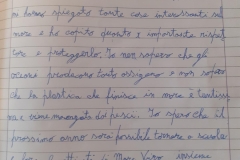 mi hanno spiegato tante cose interessanti sul
mare e ho capito quanto è importante rispet
tare e proteggerlo. Io non sapevo che gli
oceani producevano tanto ossigeno e non sapevo
che la plastica che finisce in mare è tantissi
ma e viene mangiata dai pesci. Io spero che il
prossimo anno sarà possibile tornare a scuola